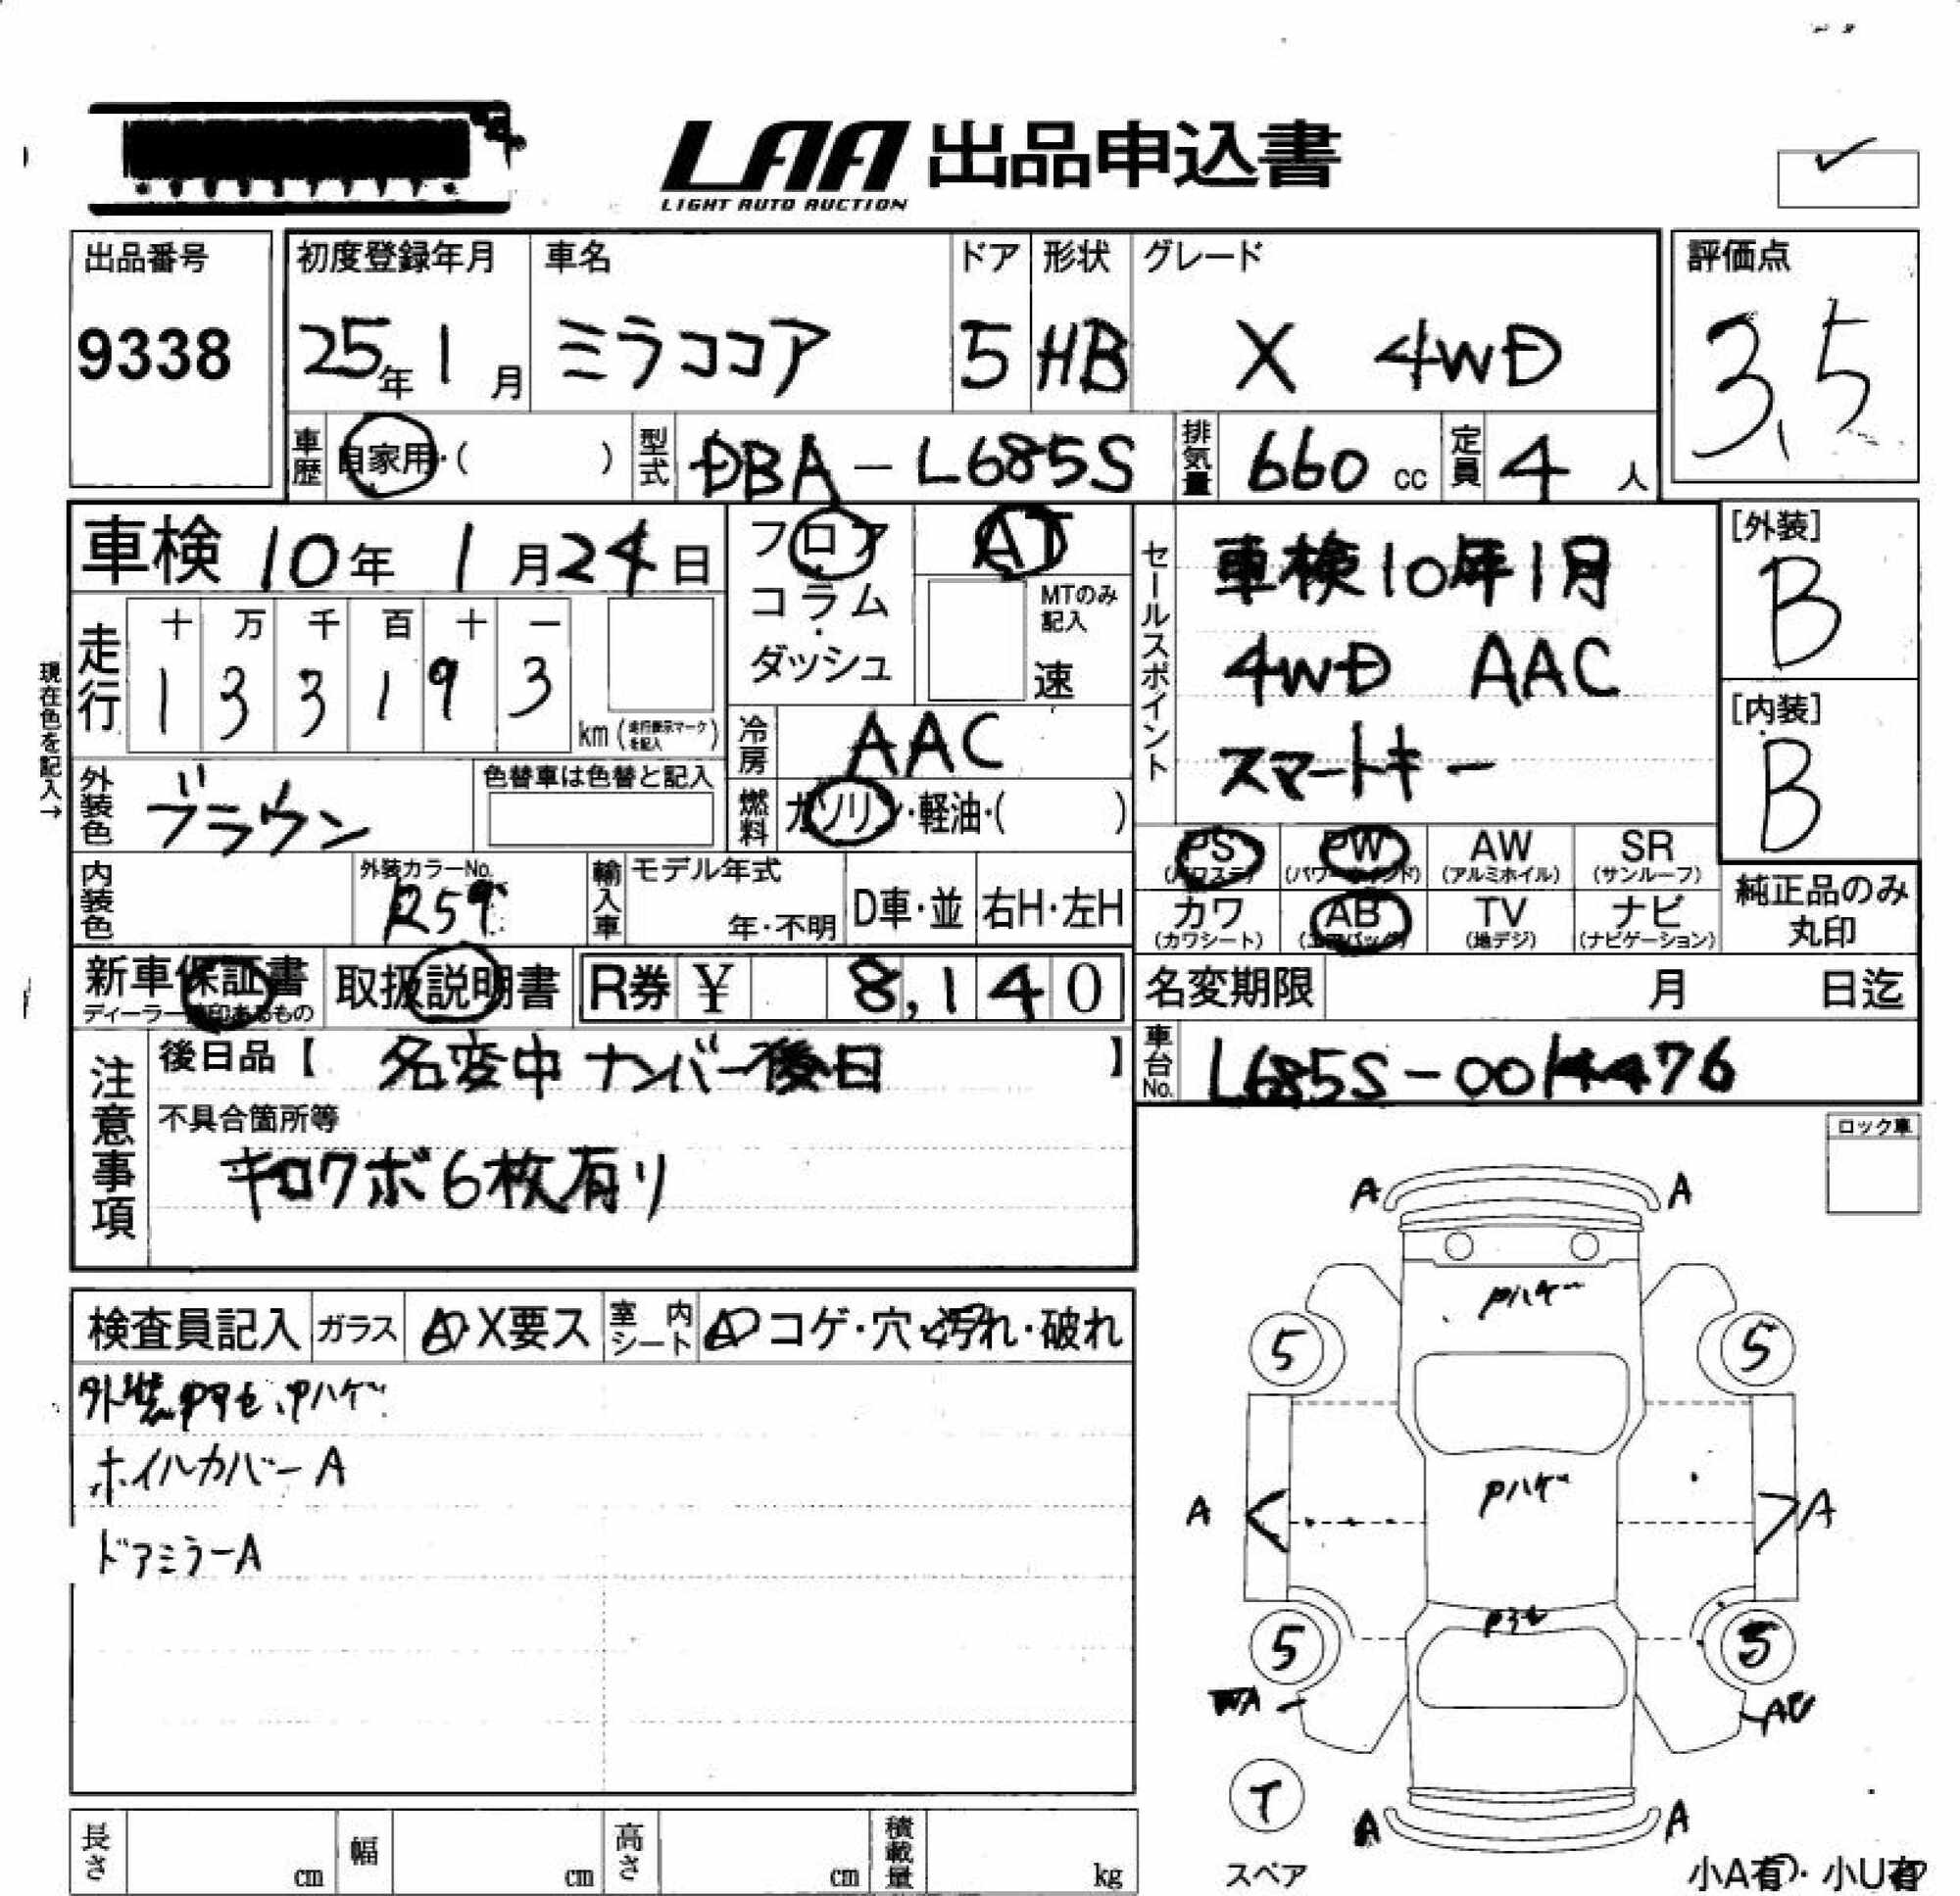 LAA 出品申込書
LIGHT AUTO AUCTION
出品番号
9338
初度登録年月
25年 1月
車名
ミラココア
ドア
5
形状
HB
グレード
X 4WD
評価点
3.5
車歴 自家用・( )
型式 DBA-L685S
排気量 660 cc
定員 4 人
車検 10年 1月24日
フロア
コラム・
ダッシュ
AT
MTのみ記入
速
セールスポイント
車検10年1月
4WD AAC
スマートキー
[外装]
B
[内装]
B
現在色を記入→
走行
十 万 千 百 十 一
1 3 3 1 9 3
km (走行表示マークを記入)
冷房 AAC
燃料 ガソリン・軽油・( )
外装色 ブラウン
色替車は色替と記入
内装色
外装カラーNo.
R59
輸入車
モデル年式
年・不明
D車・並
右H・左H
PS
(パワステ)
PW
(パワーウインド)
AW
(アルミホイル)
SR
(サンルーフ)
カワ
(カワシート)
AB
(エアバッグ)
TV
(地デジ)
ナビ
(ナビゲーション)
純正品のみ
丸印
新車保証書
取扱説明書
R券 ¥ 8,140
名変期限 月 日迄
注意事項
後日品【 名変中 ナンバー後日 】
不具合箇所等
キロワボ6枚有リ
車台No. L685S-0014476
ロック車
検査員記入
ガラス A・X要ス
室内シート A コゲ・穴・汚れ・破れ
外装
Pハゲ
ホイルカバーA
ドアミラーA
A A
Pハゲ
5 5
Pハゲ
A A
5 5
T
スペア
A A
小A有・小U有
長さ cm
幅 cm
高さ cm
積載量 kg